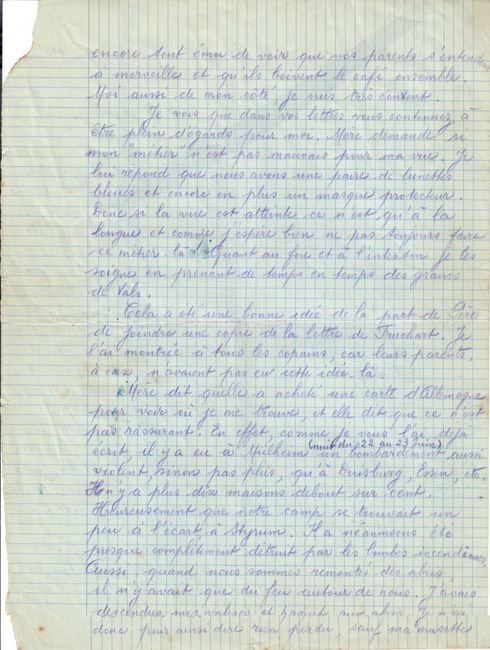 encore tout ému de voir que nos parents s'entendent
à merveille et qu'ils boivent le café ensemble.
Moi aussi de mon côté, je suis très content.
Je vois que dans vos lettres vous continuez à
être plein d'égards pour moi. Mère demande si
mon "métier" n'est pas mauvais pour ma vue. Je
lui répond que nous avons une paire de lunettes
bleues et encore en plus un masque protecteur.
Donc si la vue est atteinte ce n'est qu'à la
longue et comme j'espère bien ne pas toujours faire
ce métier là ! Quant au foie et à l'intestin je les
soigne en prenant de temps en temps des grains
de Vals.
Cela a été une bonne idée de la part de Père
de joindre une copie de la lettre de Truchart. Je
l'ai montrée à tous les copains, car leurs parents,
à eux, n'avaient pas eu cette idée là.
Mère dit qu'elle a acheté une carte d'Allemagne
pour voir où je me trouve, et elle dit que ce n'est
pas rassurant. En effet, comme je vous l'ai déjà
(nuit du 22 au 23 juin)
écrit, il y a eu à Mülheim un bombardement aussi
violent, sinon pas plus, qu'à Duisburg, Essen, etc.
Il n'y a plus dix maisons debout sur cent.
Heureusement que notre camp se trouvait un
peu à l'écart à Styrum. Il a néanmoins été
presque complètement détruit par les bombes incendiaires.
Aussi quand nous sommes remontés des abris,
il n'y avait que du feu autour de nous. J'avais
descendus mes valises et paquets aux abris. Je n'ai
donc pour ainsi dire rien perdu, sauf ma musette